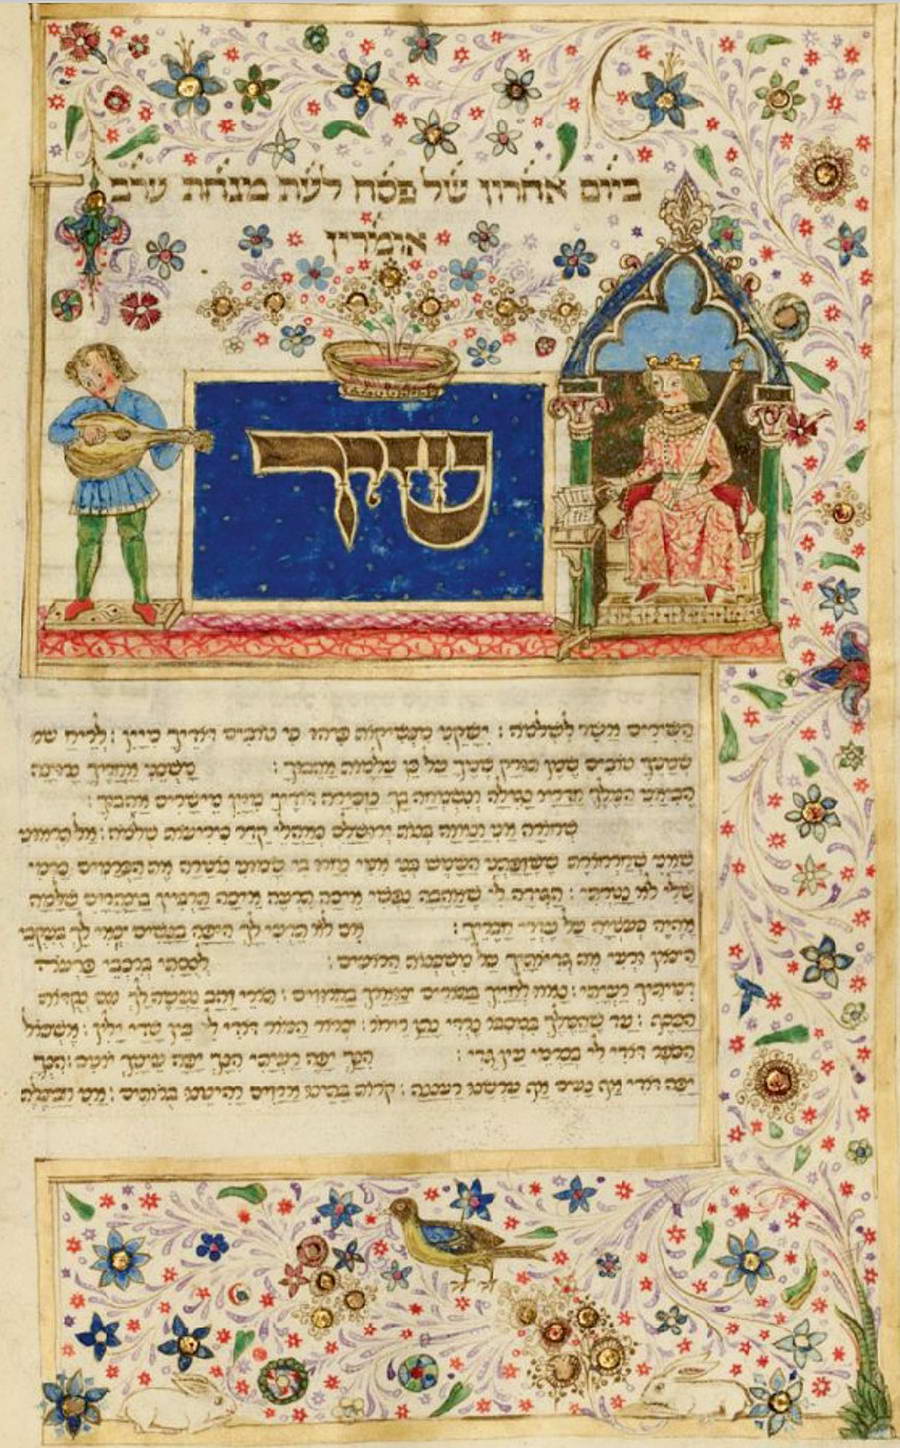 ביום אחרון של פסח לעת מנחת ערב
אומרין
שיר
השירים אשר לשלמה : ישקני מנשיקות פיהו כי טובים דודיך מיין : לריח שמ
שמניך טובים שמן תורק שמך על כן עלמות אהבוך : משכני אחריך נרוצה
הביאני המלך חדריו נגילה ונשמחה בך נזכירה דודיך מיין מישרים אהבוך :
שחורה אני ונאוה בנות ירושלם כאהלי קדר כיריעות שלמה : אל תראוני
שאני שחרחורת ששזפתני השמש בני אמי נחרו בי שמוני נוטרה את הכרמים כרמי
שלי לא נטרתי : הגידה לי שאהבה נפשי איכה תרעה איכה תרביץ בצהרים שלמה
אהיה כעטיה על עדרי חבריך : אם לא תדעי לך היפה בנשים צאי לך בעקבי
הצאן ורעי את גדיותיך על משכנות הרועים : לססתי ברכבי פרעה
דמיתיך רעיתי : נאוו לחייך בתורים צוארך בחרוזים : תורי זהב נעשה לך עם נקדות
הכסף : עד שהמלך במסבו נרדי נתן ריחו : צרור המור דודי לי בין שדי ילין : אשכול
הכפר דודי לי בכרמי עין גדי : הנך יפה רעיתי הנך יפה עיניך יונים : הנך
יפה דודי אף נעים אף ערשנו רעננה : קורות בתינו ארזים רהיטנו ברותים : אני חבצלת